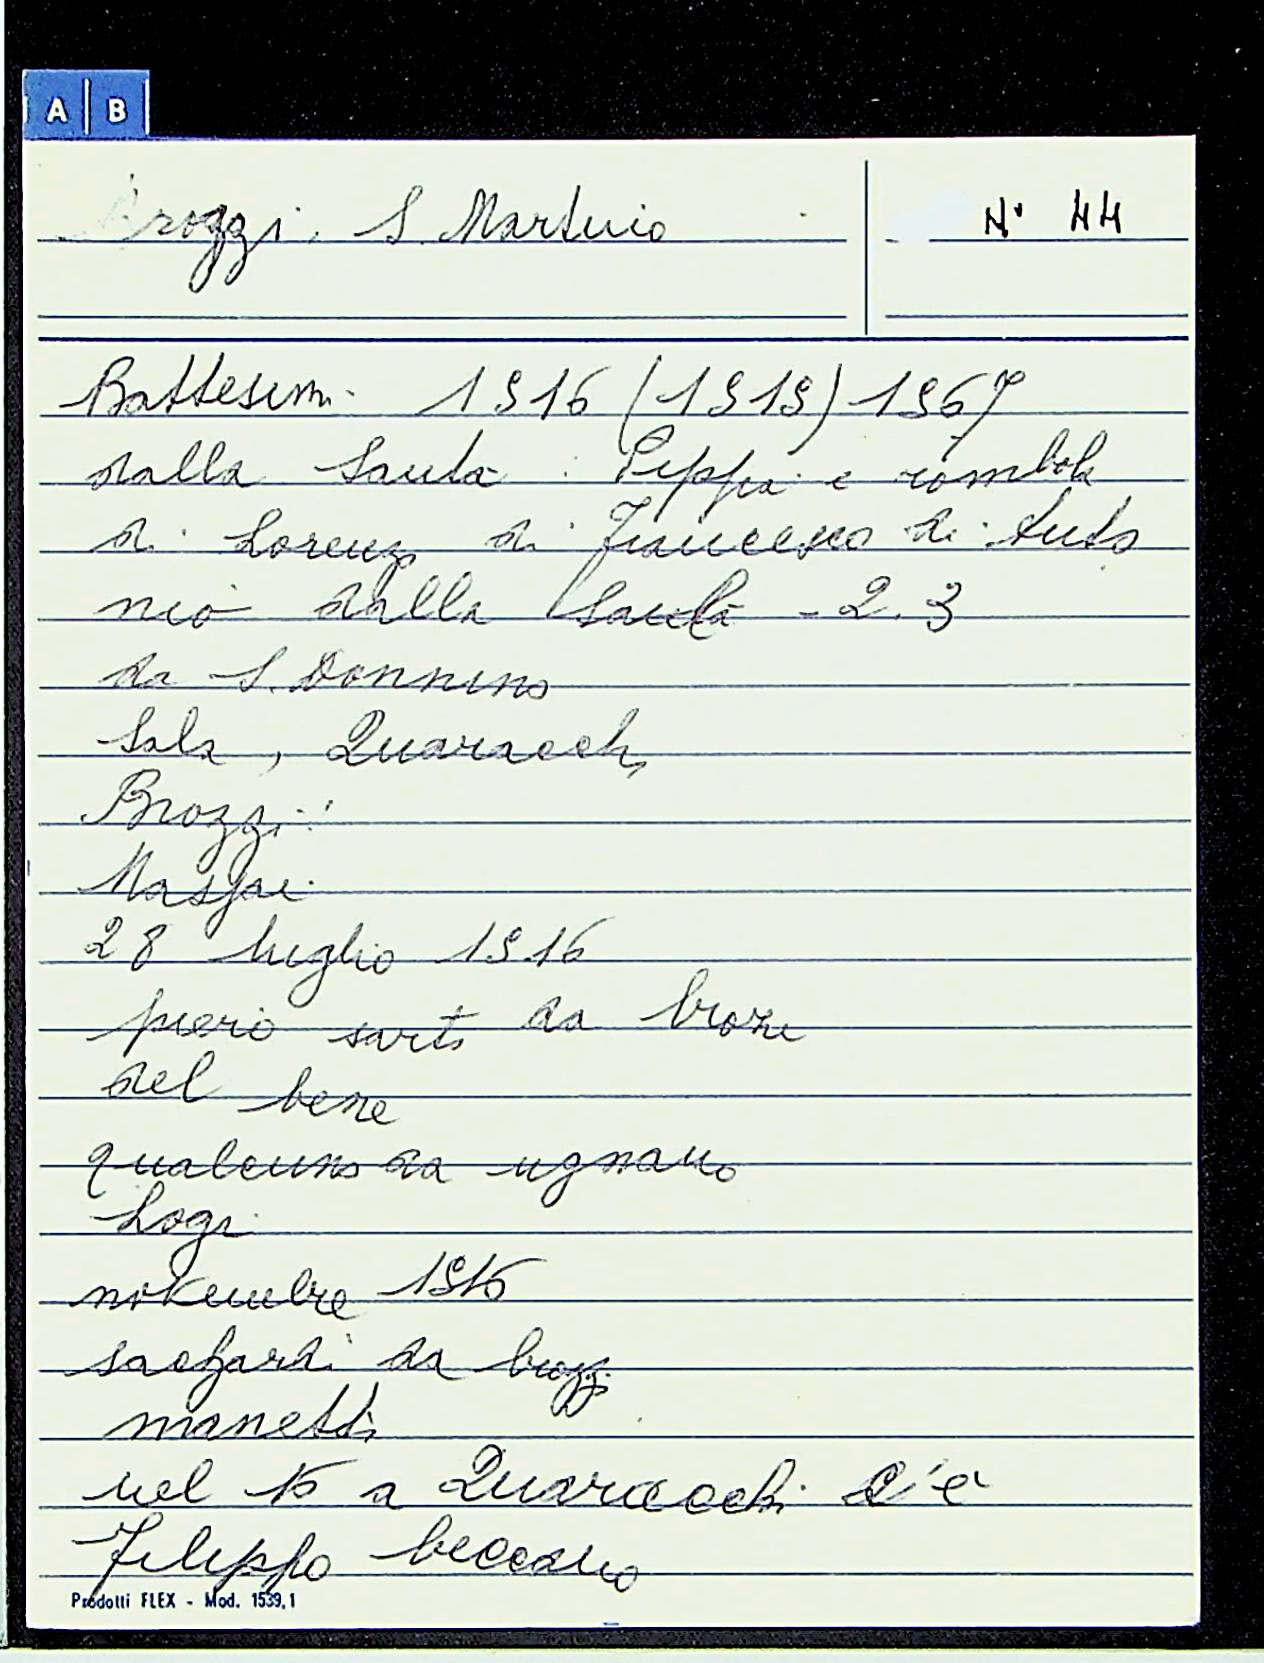 A B
Brozzi. S. Martino
N° 44
Battesim. 1516 (1519) 1567
dalla Santa: Peppa e
di Lorenzo di Francesco di Anto
nio dalla Santa - 2.3
da S. Donnino
Sala, Quaracchi
Brozzi
Masjai
28 luglio 1516
piero sarti da brozi
del bene
qualcuno da ugnano
Logi
novembre 1516
da brozzi
manetti
nel 16 a Quaracchi c'è
Filippo beccaio
Prodotti FLEX - Mod. 1539,1